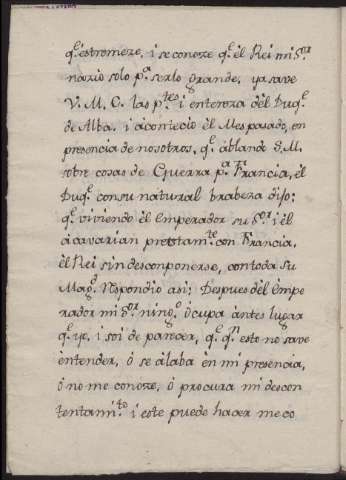 q.^e estromeze, i se conoze q.^e el Rei mi S.^or
nazio solo p.^a serlo grande, ya save
V. M. C. las p.^tes i entereza dèl Duq.^e
de Alba. i àcontecio èl Mes pasado, en
presencia de nosotros, q.^e àblando S. M.
sobre cosas de Guerra p.^a Francia, èl
Duq.^e con su natural brabeza dijo:
q.^e viviendo èl Emperador su S.^or i èl
àcavarian prestam.^te con Francia,
èl Rei sin desconponerse, con toda su
Mag.^d Respondio asi; Despues dèl Empe
rador mi S.^or ning.^o òcupa àntes lugar
q.^e yo, i soi de parecer, q.^e q.^n esto no save
èntender, ò se àlaba èn mi presencia,
ò no me conoze, ò procura mi descon
tentam.^to i este puede hacer me co